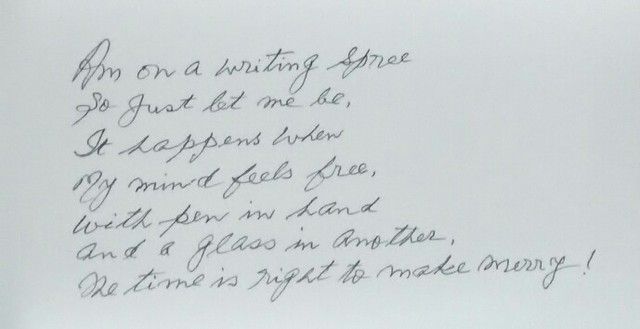 Am on a writing spree
So Just let me be,
It happens when
My mind feels free,
with pen in hand
and a glass in another,
The time is right to make merry!